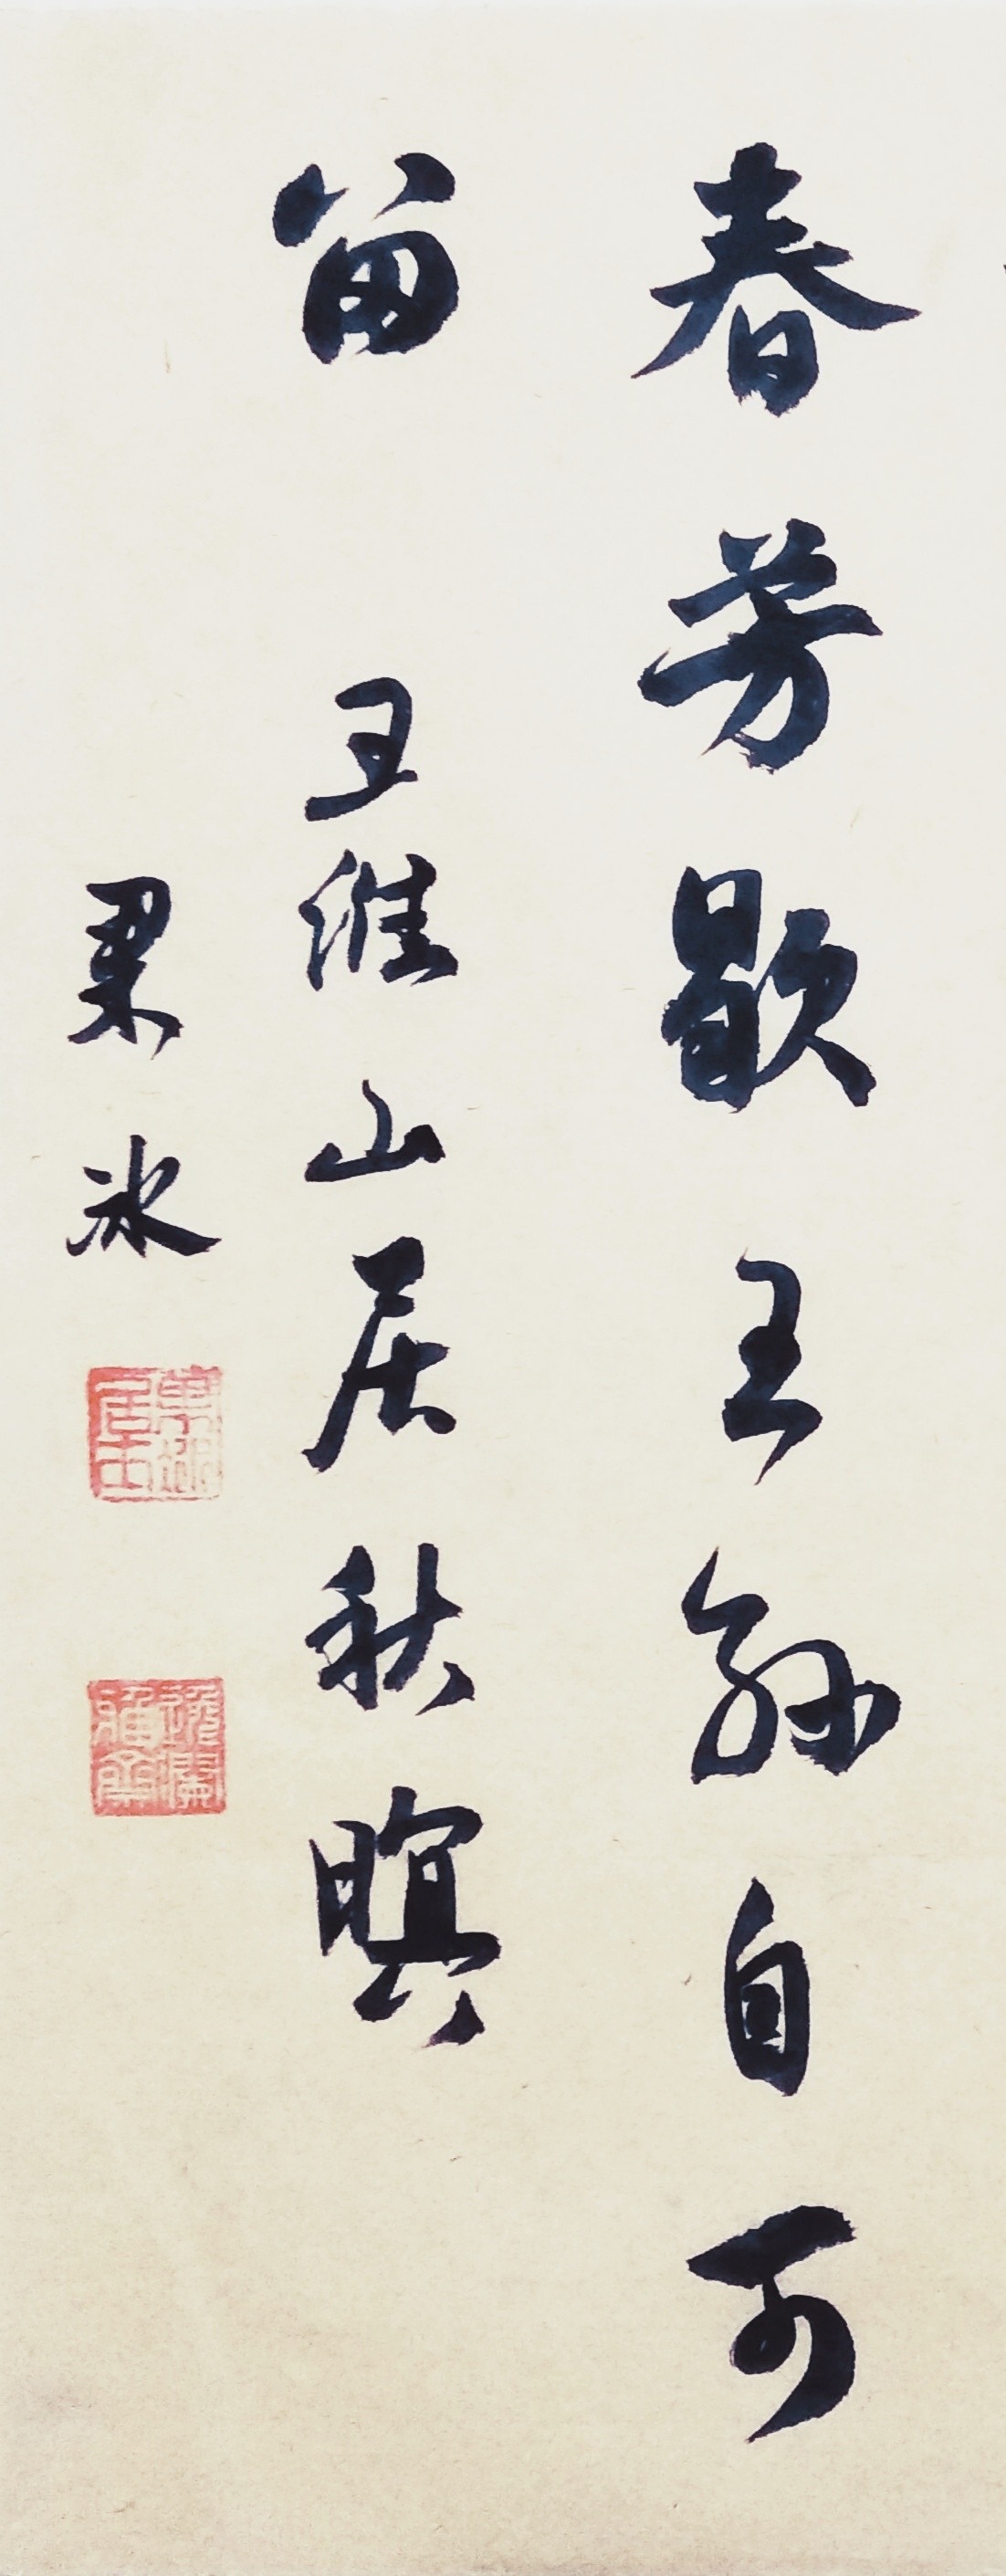 春芳歇王孫自可
留 王維山居秋暝
梁冰